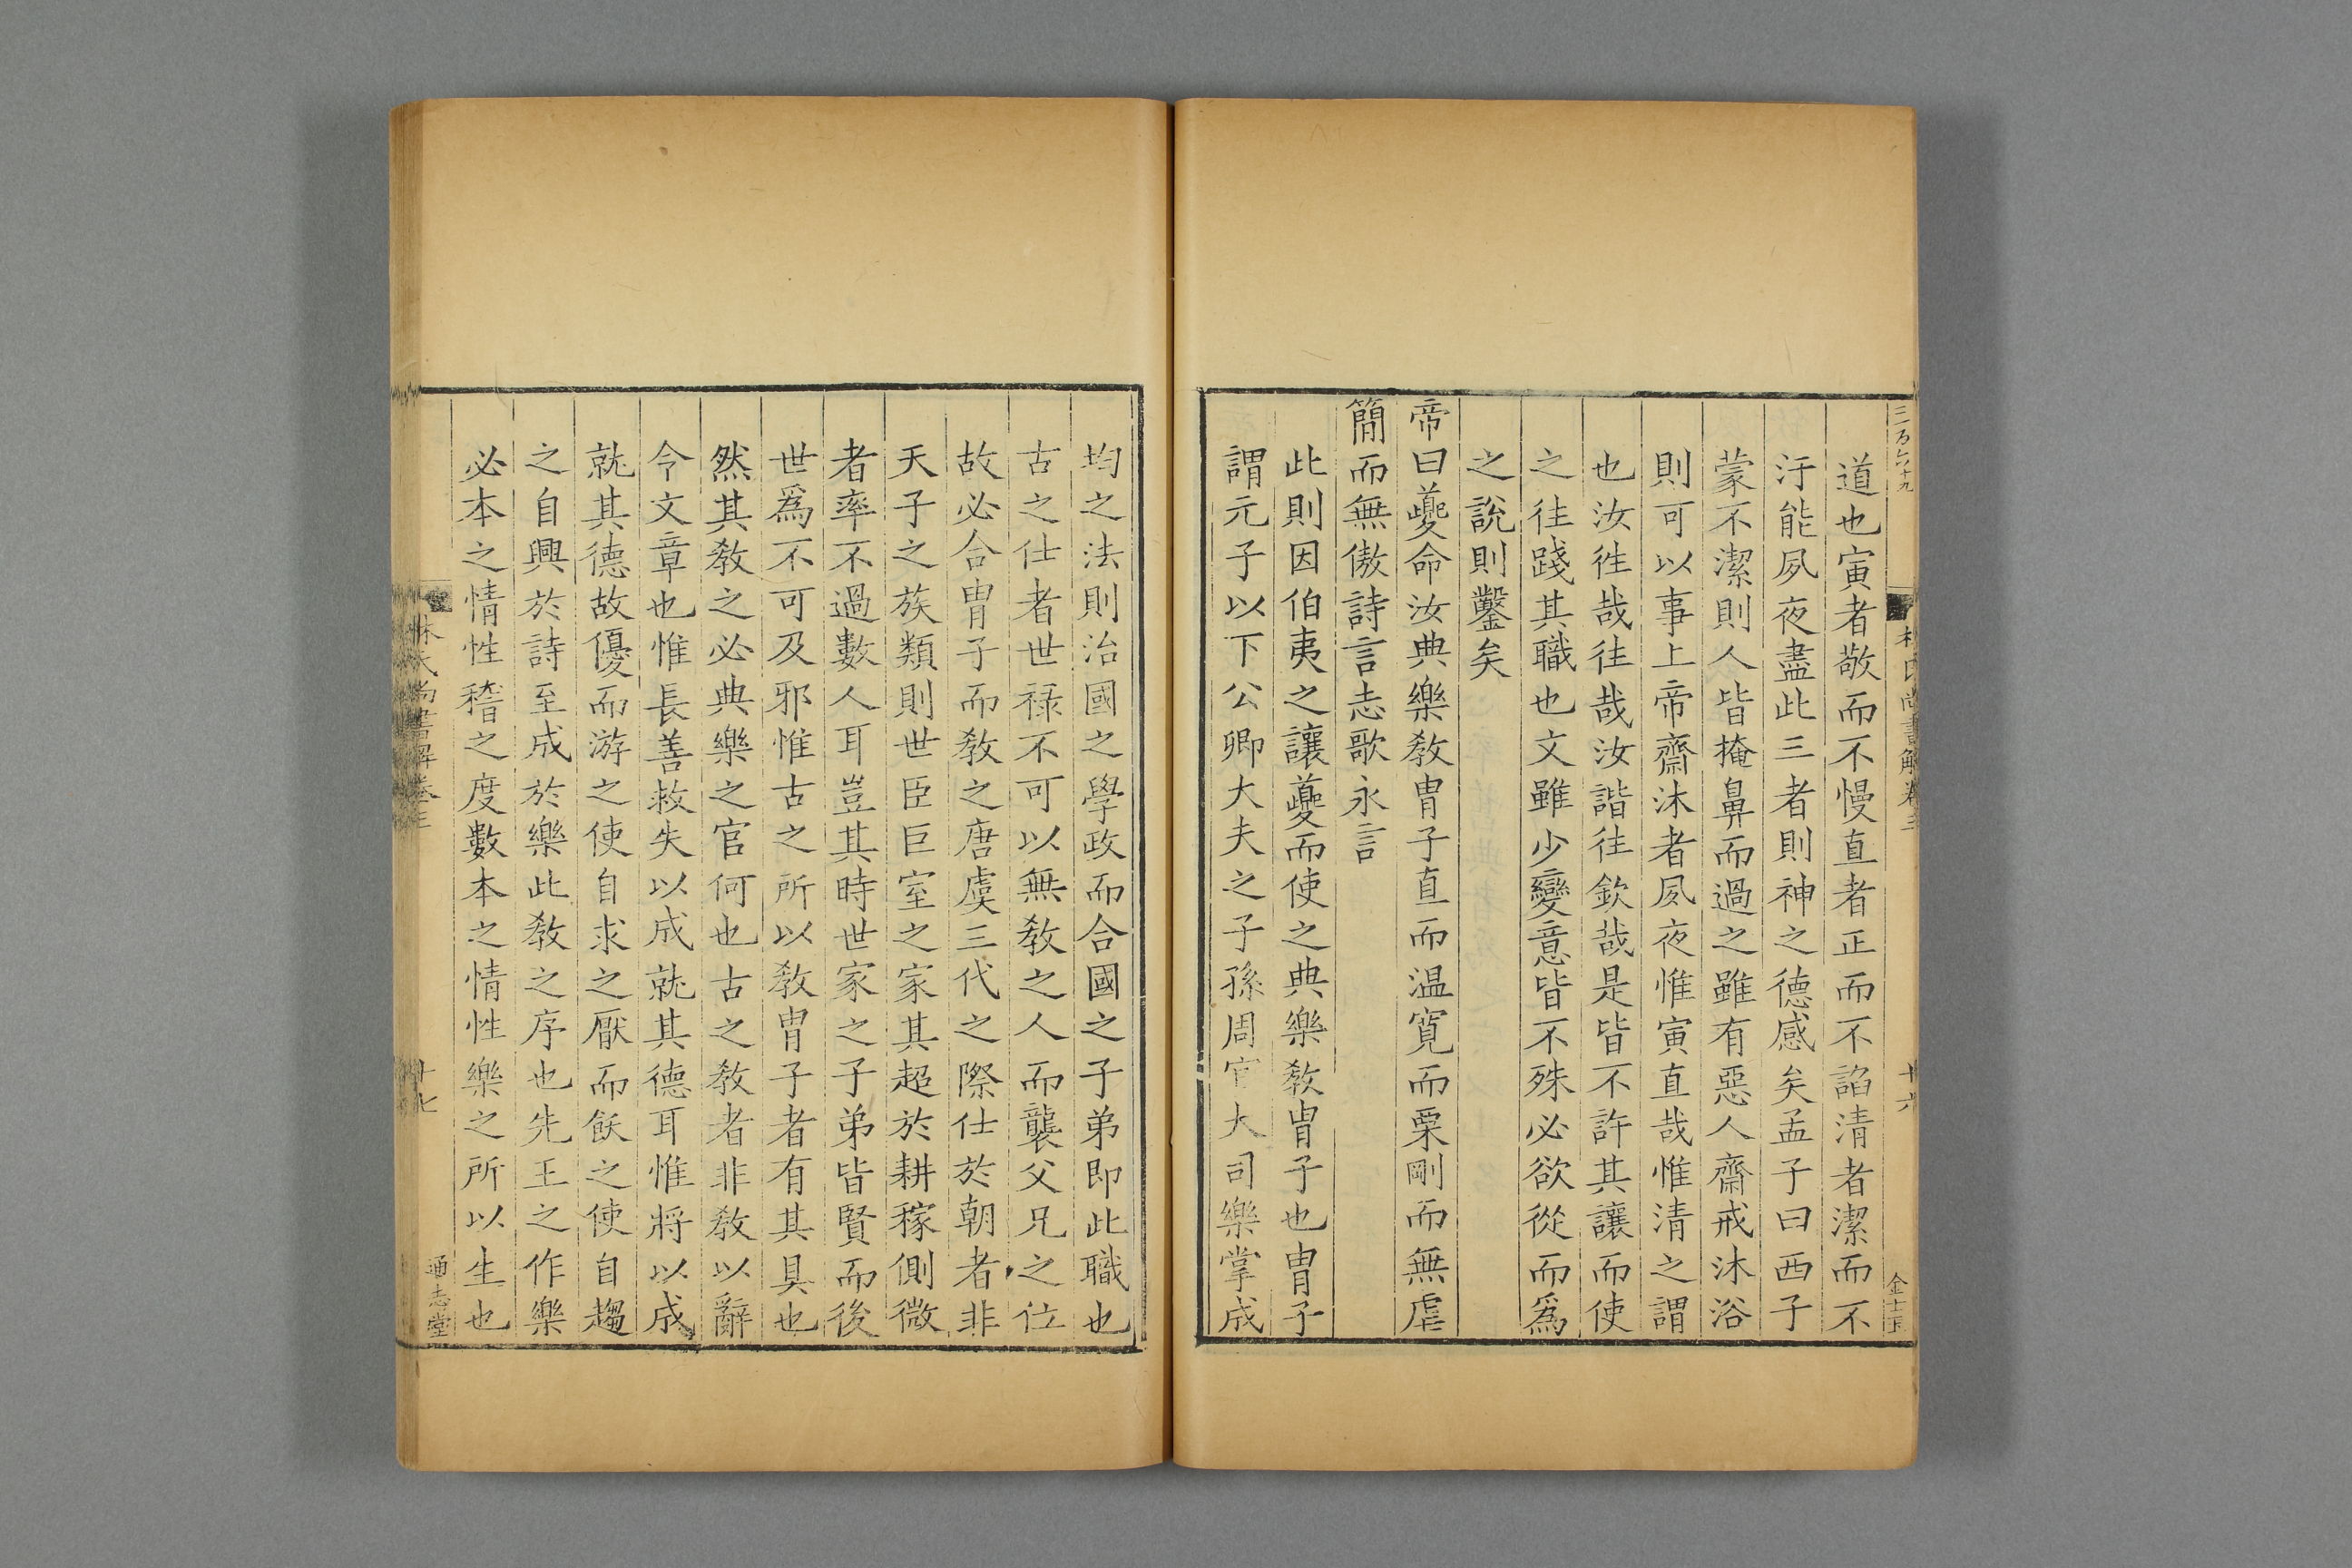 三百六十九
林氏尚書解卷三
廿六
金士玉
道也寅者敬而不慢直者正而不謟清者潔而不
汙能夙夜盡此三者則神之德感矣孟子曰西子
蒙不潔則人皆掩鼻而過之雖有惡人齋戒沐浴
則可以事上帝齋沐者夙夜惟寅直哉惟清之謂
也汝徃哉往哉汝諧往欽哉是皆不許其讓而使
之往踐其職也文雖少變意皆不殊必欲從而爲
之說則鑿矣
帝曰夔命汝典樂敎冑子直而温寛而栗剛而無虐
簡而無傲詩言志歌永言
此則因伯夷之讓夔而使之典樂敎冑子也冑子
謂元子以下公卿大夫之子孫周官大司樂掌成
均之法則治國之學政而合國之子弟即此職也
古之仕者世禄不可以無敎之人而襲父兄之位
故必合冑子而敎之唐虞三代之際仕於朝者非
天子之族類則世臣巨室之家其超於耕稼側微
者率不過數人耳豈其時世家之子弟皆賢而後
世爲不可及邪惟古之所以敎冑子者有其具也
然其敎之必典樂之官何也古之敎者非敎以辭
令文章也惟長善救失以成就其德耳惟將以成
就其德故優而游之使自求之厭而飫之使自趨
之自興於詩至成於樂此敎之序也先王之作樂
必本之情性稽之度數本之情性樂之所以生也
林氏尚書解卷三
廿七
通志堂